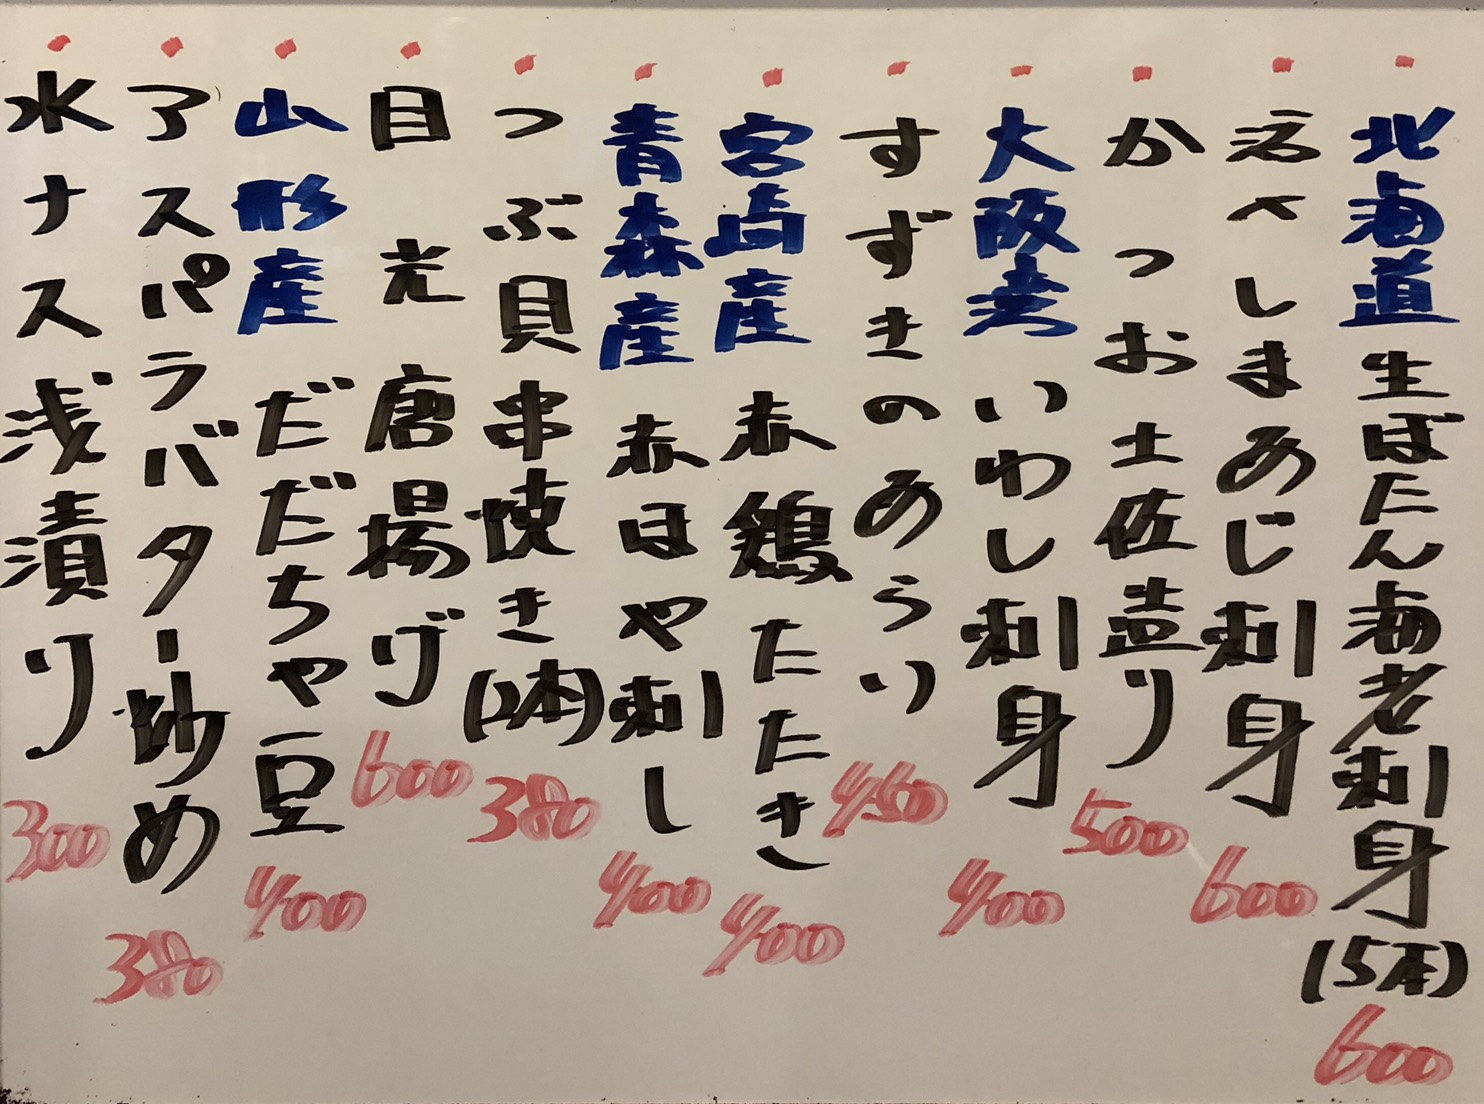 北海道生ぼたん海老刺身(5本)600
活〆しまあじ刺身600
かつお土佐造り500
大阪湾いわし刺身400
すずきのあらい450
宮崎産赤鶏たたき400
青森産赤ほや刺し400
つぶ貝串焼き(2本)380
目光唐揚げ600
山形産だだちゃ豆400
アスパラバター炒め380
水ナス浅漬り300